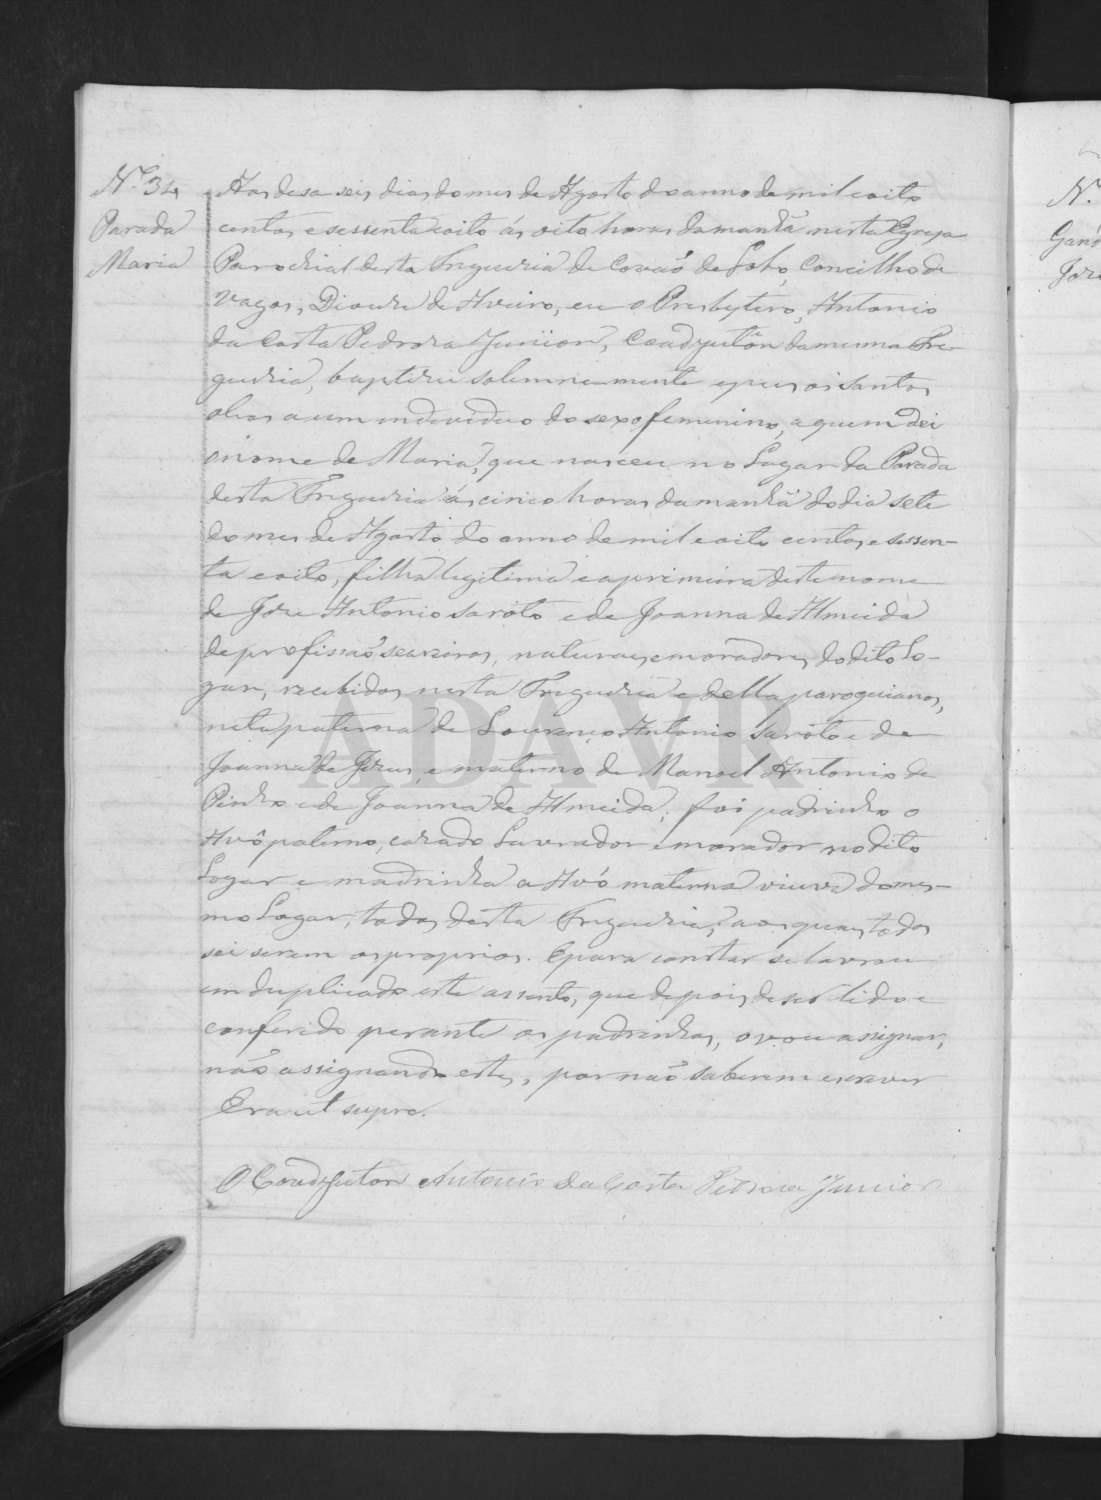 Nº 34
Parada
Maria
Aos desaseis dias do mes de Agosto do anno de mil e oito
centos e sessenta e oito ás oito horas da manhã nesta Egreja
Parochial desta Freguezia de Covaõ de Lobo, Concilho de
Vagos, Diocese de Aveiro, eu o Presbytero, Antonio
da Costa Pedroza Junior, Coadjutor da mesma Fre-
guezia, baptizei solemnemente e puz os santos
oleos a um individuo do sexo femenino, a quem dei
o nome de Maria, que nasceu no Lugar da Parada
desta Freguezia ás cinco horas da manhã do dia sete
do mes de Agosto do anno de mil e oito centos e sessen-
ta e oito, filha legitima e a primeira deste nome
de José Antonio Saróto e de Joanna de Almeida
de profissaõ seareiros, naturaes e moradores do dito Lo-
gar, recebidos nesta Freguezia e della paroquianos,
neta paterna de Lourenço Antonio Saróto e de
Joanna de Jesus, e materno de Manoel Antonio de
Pinho e de Joanna de Almeida; foi padrinho o
Avô paterno, cazado Lavrador e morador no dito
Logar e madrinha a Avó materna viuva do mes-
mo Logar, todos desta Freguezia, aos quaes todos
sei serem os proprios. E para constar se lavrou
em duplicado este assento, que depois de ser lido e
conferido perante os padrinhos, o vou assignar,
não assignando estes, por naõ saberem escrever
Era ut supra.
O Coadjutor Antonio da Costa Pedroza Junior
ADAVR
Nº
José